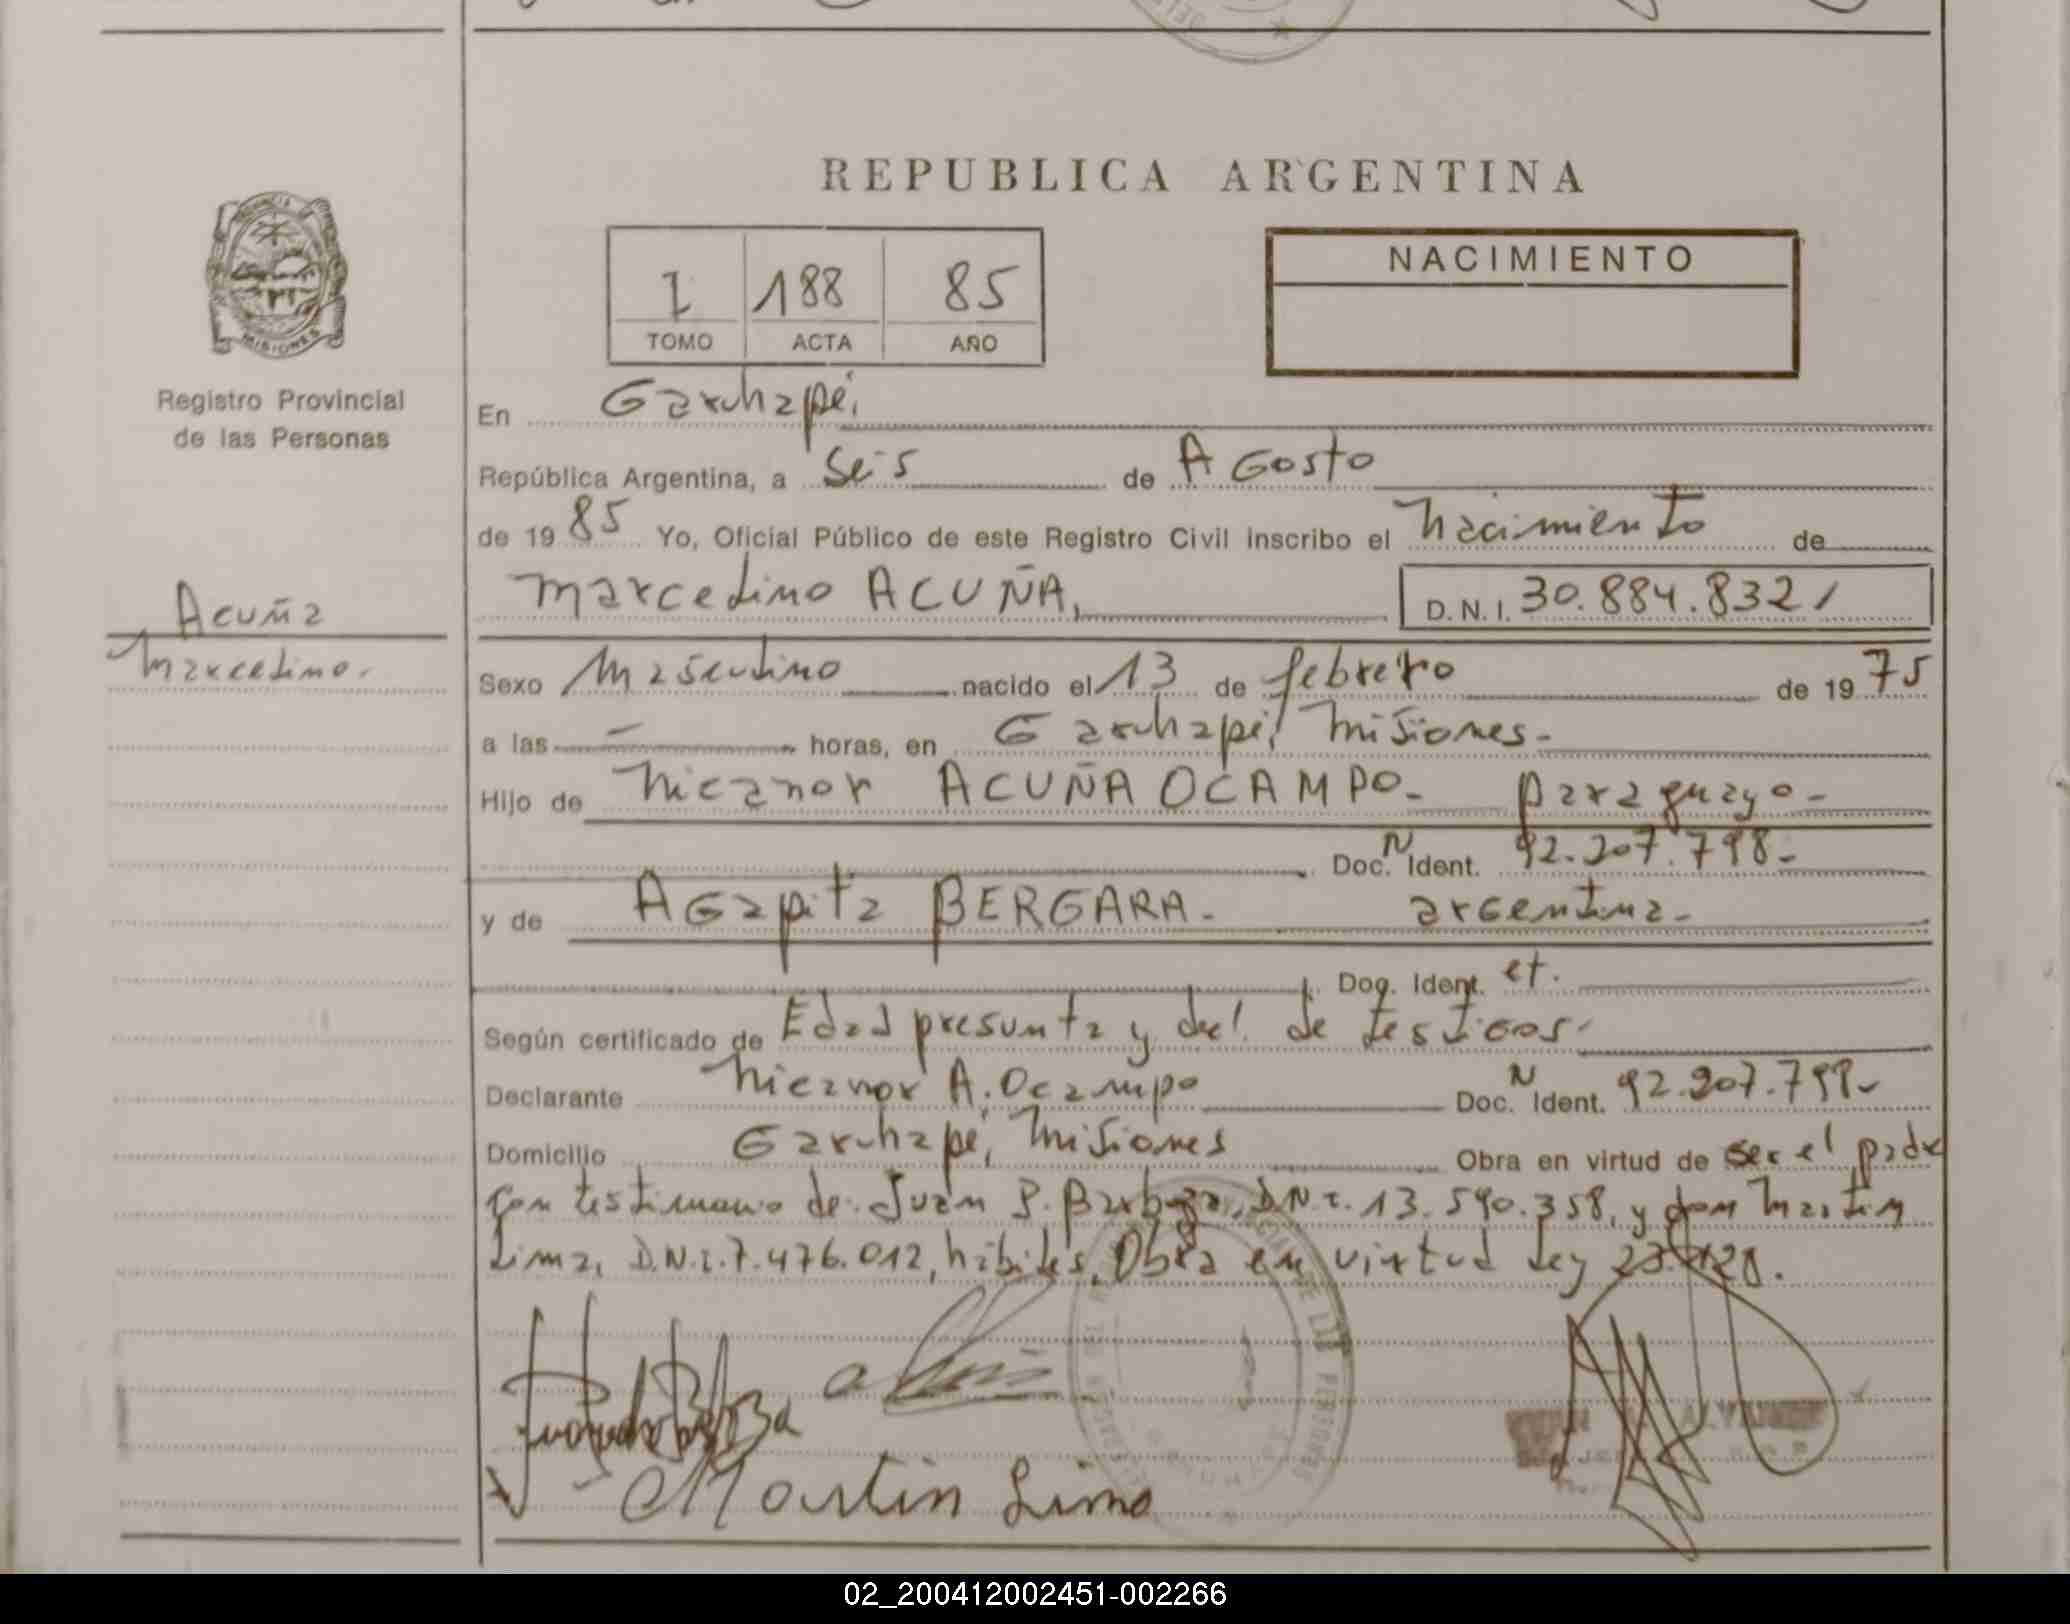 REPUBLICA ARGENTINA
PROVINCIA DE
MISIONES
Registro Provincial
de las Personas
1 188 85
TOMO ACTA AÑO
NACIMIENTO
En Garuhapé,
República Argentina, a Seis de AGosto
de 19 85 Yo, Oficial Público de este Registro Civil inscribo el Nacimiento de
Marcelino ACUÑA, D.N.I. 30.884.832/
Acuña
Marcelino.
Sexo Masculino nacido el 13 de febrero de 1975
a las — horas, en Garuhapé, Misiones.-
Hijo de Nicanor ACUÑA OCAMPO.- paraguayo-
Doc. N Ident. 92.207.798-
y de AGapita BERGARA.- argentina-
Doc. Ident. et.
Según certificado de Edad presunta y decl. de testigos-
Declarante Nicanor A. Ocampo Doc. N Ident. 92.207.798-
Domicilio Garuhapé, Misiones Obra en virtud de ser el padre
con testimonio de: Juan P. Barboza, D.N.I. 13.590.358, y don Martin
Lima, D.N.I. 7.476.012, hábiles. Obra en virtud Ley 23.128.
Martin Lima
02_200412002451-002266